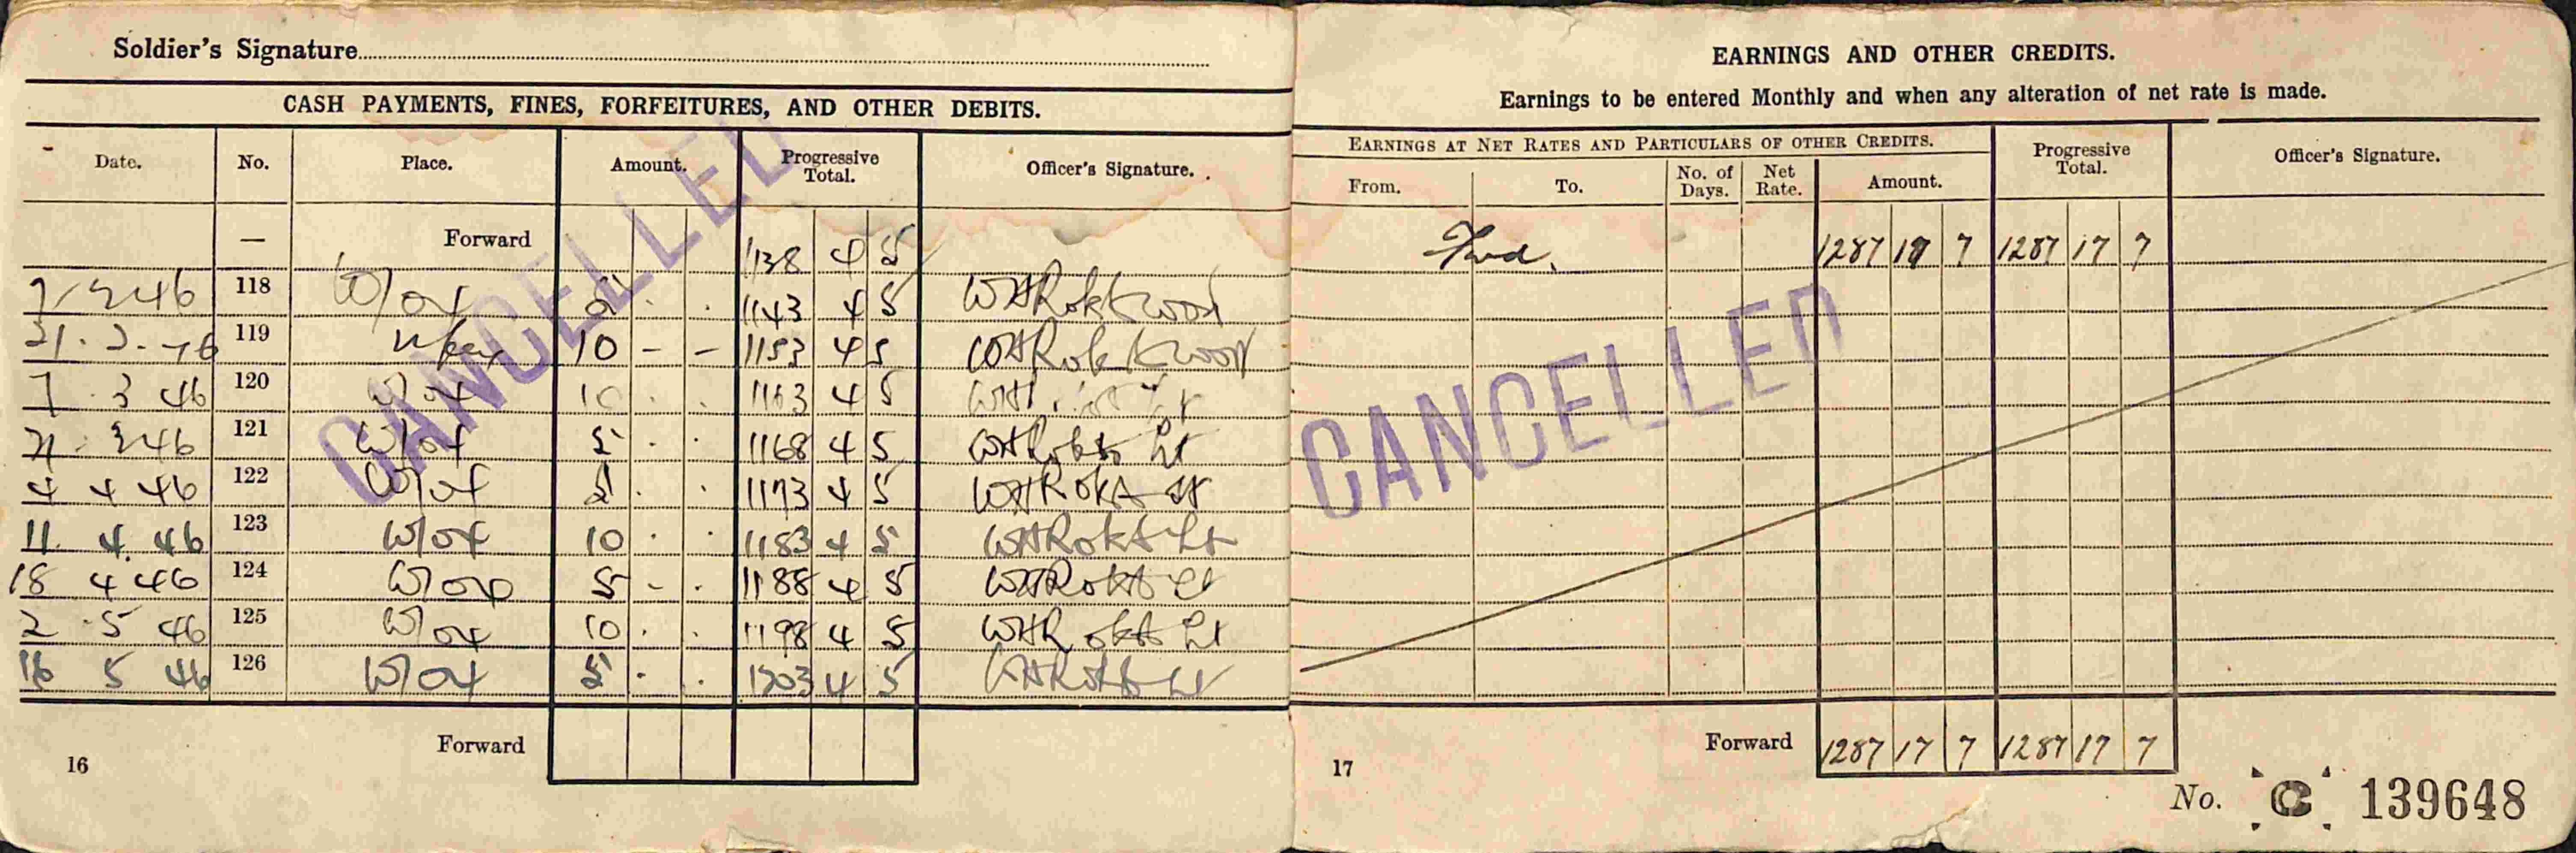 Soldier's Signature
CASH PAYMENTS, FINES, FORFEITURES, AND OTHER DEBITS.
Date. No. Place. Amount. Progressive Total. Officer's Signature.
— Forward 1138 4 5
46 118 W/ox 5 1143 4 5
21. 2. 46 119 10 — — 1153 4 5
7 3 46 120 W/ox 10 1163 4 5
21 3 46 121 W/ox 5 1168 4 5
4 4 46 122 W/ox 5 1173 4 5
11. 4. 46 123 W/ox 10 1183 4 5
18 4 46 124 W/ox 5 - 1188 4 5
2 5 46 125 W/ox 10 1198 4 5
16 5 46 126 W/ox 5 1203 4 5
Forward
16
CANCELLED
EARNINGS AND OTHER CREDITS.
Earnings to be entered Monthly and when any alteration of net rate is made.
EARNINGS AT NET RATES AND PARTICULARS OF OTHER CREDITS. Progressive Total. Officer's Signature.
From. To. No. of Days. Net Rate. Amount.
Fwd. 1287 17 7 1287 17 7
CANCELLED
Forward 1287 17 7 1287 17 7
17
No. C 139648